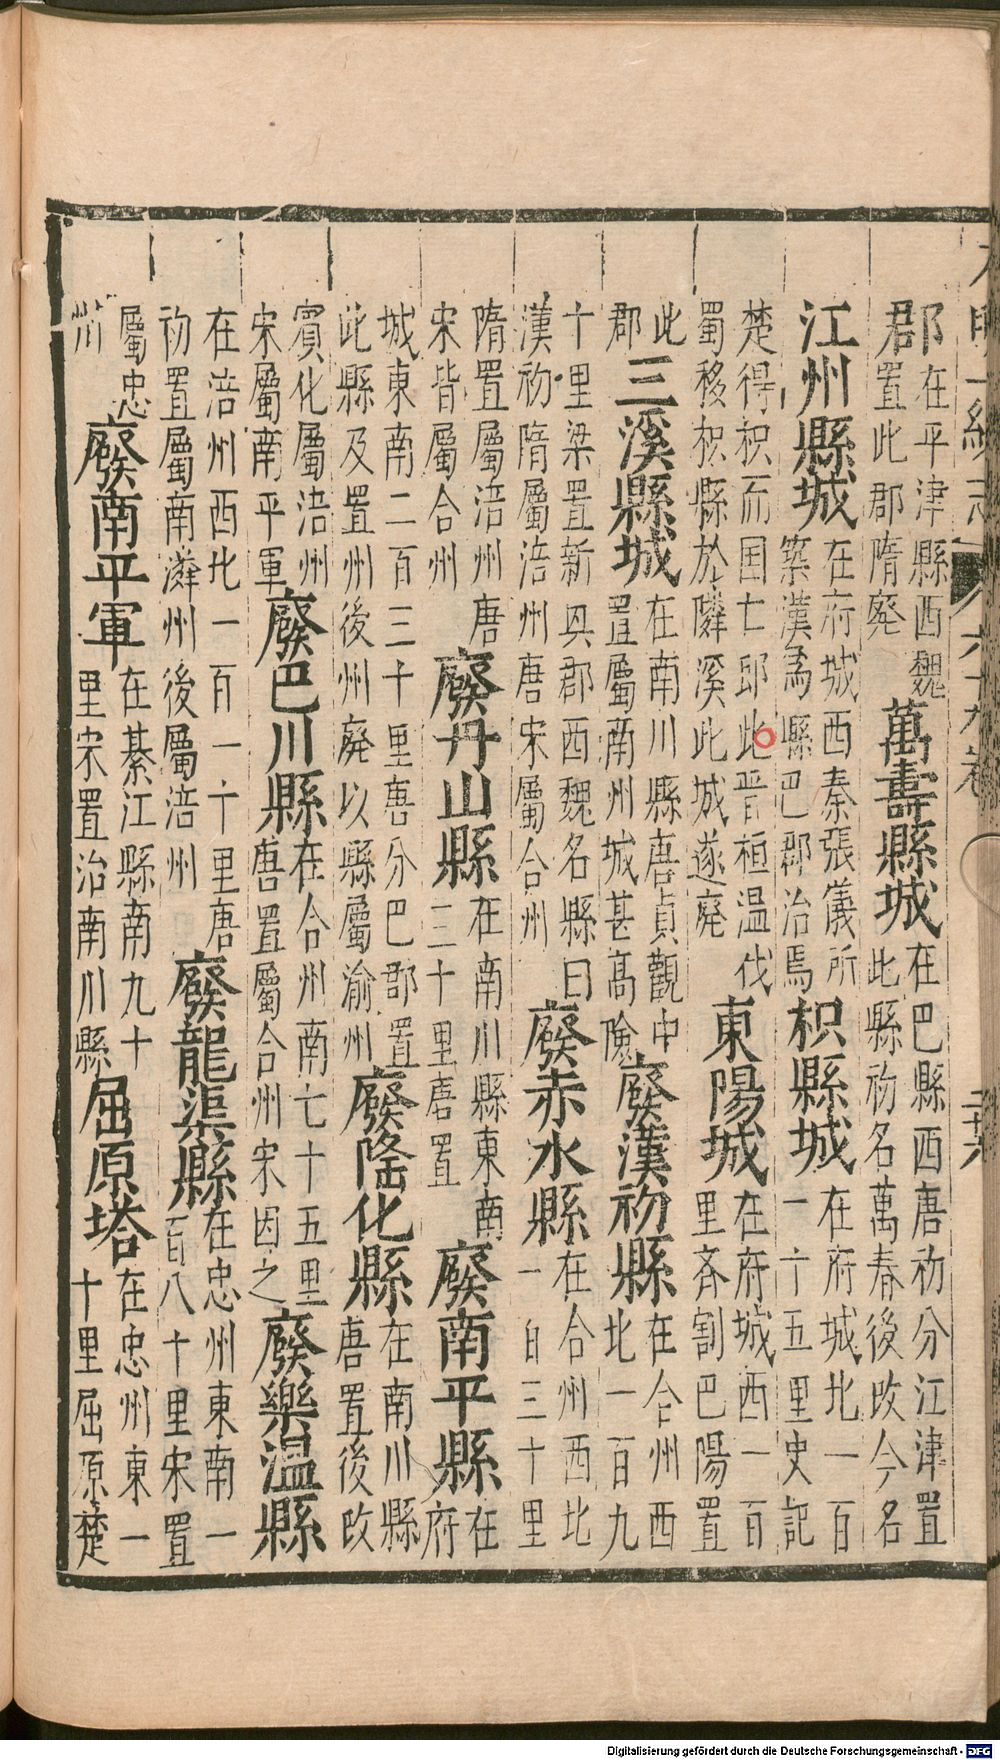 大明一統志 六十九卷 二十六
郡在平津縣西魏置此郡隋廢萬壽縣城在巴縣西唐初分江津置此縣初名萬春後改今名
江州縣城在府城西秦張儀所築漢爲縣巴郡治焉枳縣城在府城北一百一十五里史記
楚得枳而国亡邱此晋桓温伐蜀移枳縣於隣溪此城遂廢東陽城在府城西一百里斉割巴陽置
此郡三溪縣城在南川縣唐貞觀中置屬南州城甚高險廢漢初縣在合州西北一百九
十里梁置新具郡西魏名縣曰漢初隋屬涪州唐宋屬合州廢赤水縣在合州西北一百三十里
隋置屬涪州唐宋皆屬合州廢丹山縣在南川縣東南三十里唐置廢南平縣在府
城東南二百三十里唐分巴郡置此縣及置州後州廢以縣屬渝州廢隆化縣在南川縣唐置後改
賓化屬涪州宋屬南平軍廢巴川縣在合州南七十五里唐置屬合州宋因之廢樂温縣
在涪州西北一百一十里唐初置屬南灊州後屬涪州廢龍渠縣在忠州東南一百八十里宋置
屬忠州廢南平軍在綦江縣南九十里宋置治南川縣屈原塔在忠州東一十里屈原楚
Digitalisierung gefördert durch die Deutsche Forschungsgemeinschaft - DFG